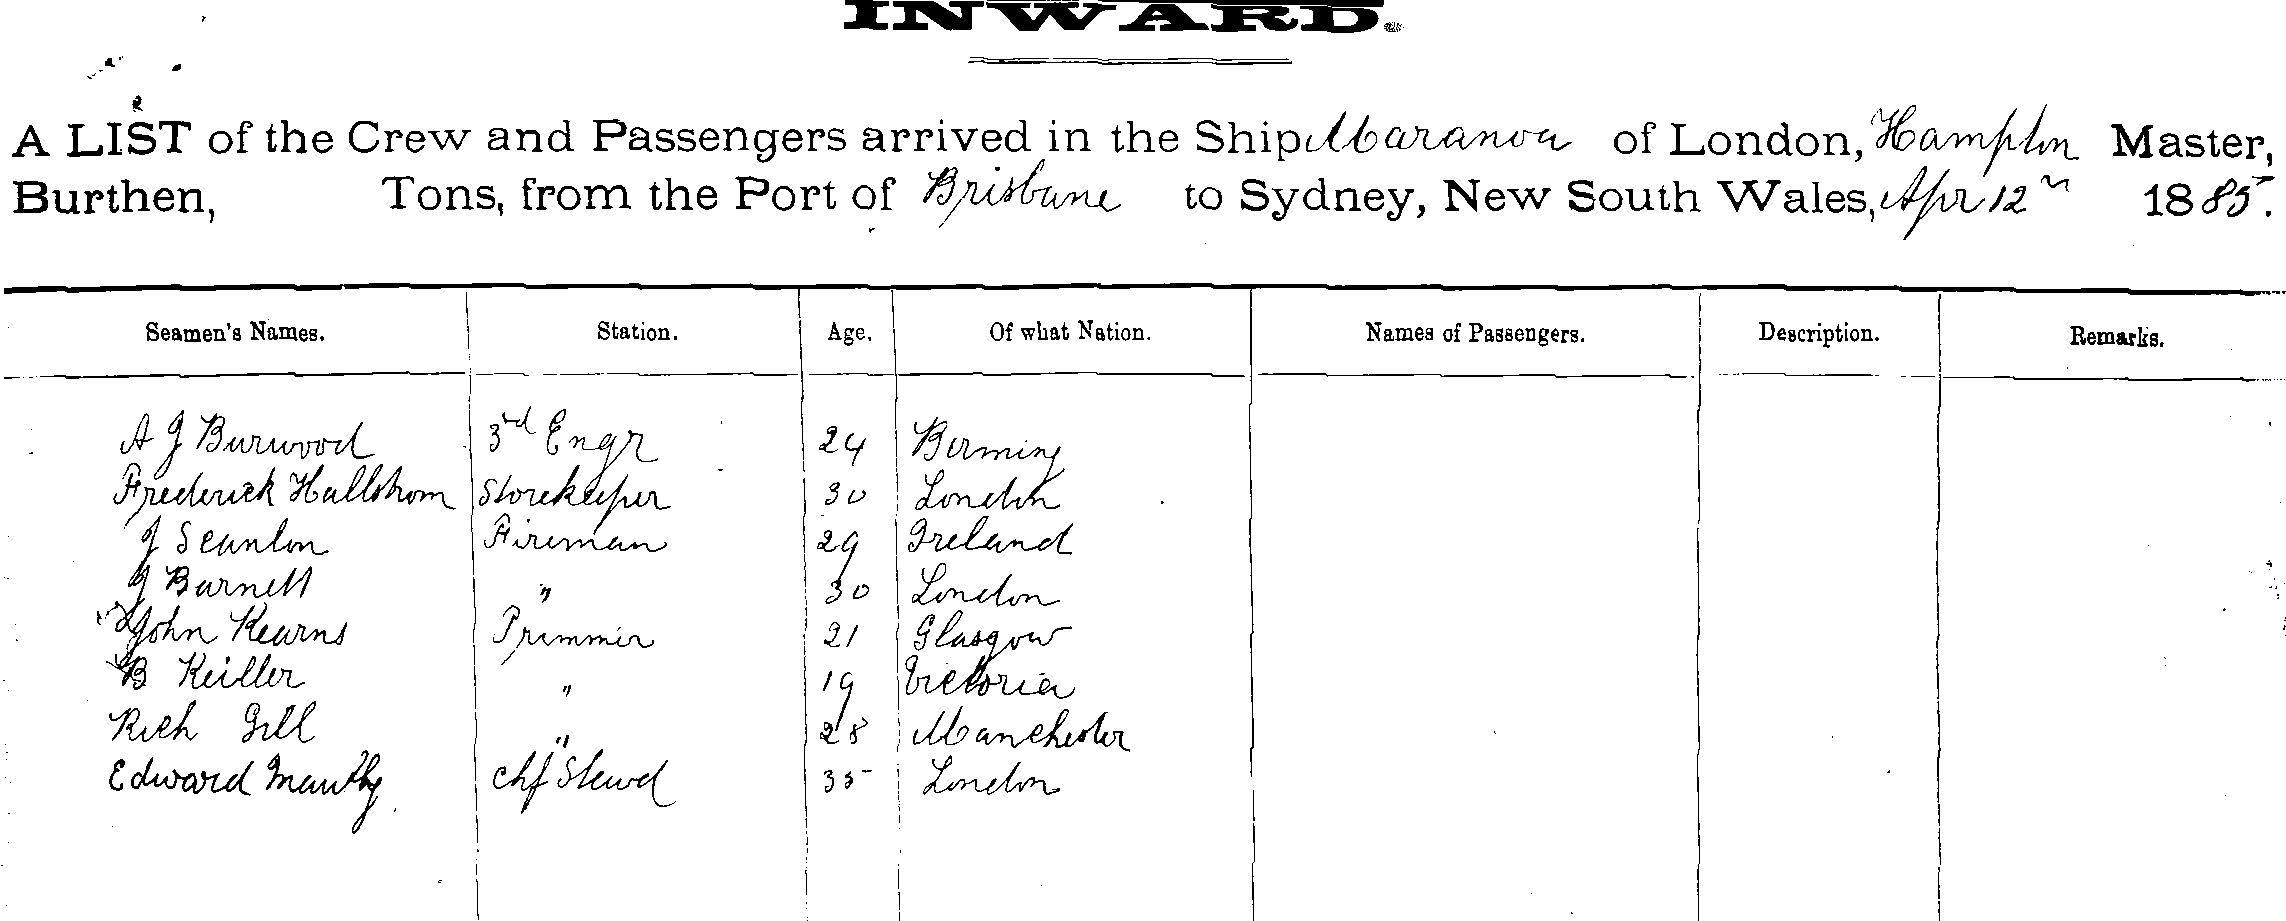 INWARD.
A LIST of the Crew and Passengers arrived in the Ship Maranoa of London, Hampton Master,
Burthen, Tons, from the Port of Brisbane to Sydney, New South Wales, Apr 12th 1885.
Seamen's Names. Station. Age. Of what Nation. Names of Passengers. Description. Remarks.
A J Burwood 3rd Engr 24 Birming
Frederick Hallstrom Storekeeper 30 London
J Scanlon Fireman 29 Ireland
J Barnett " 30 London
John Kearns Trimmer 21 Glasgow
B Keiller " 19 Victoria
Rich Gill " 28 Manchester
Edward chf Stewd 35 London